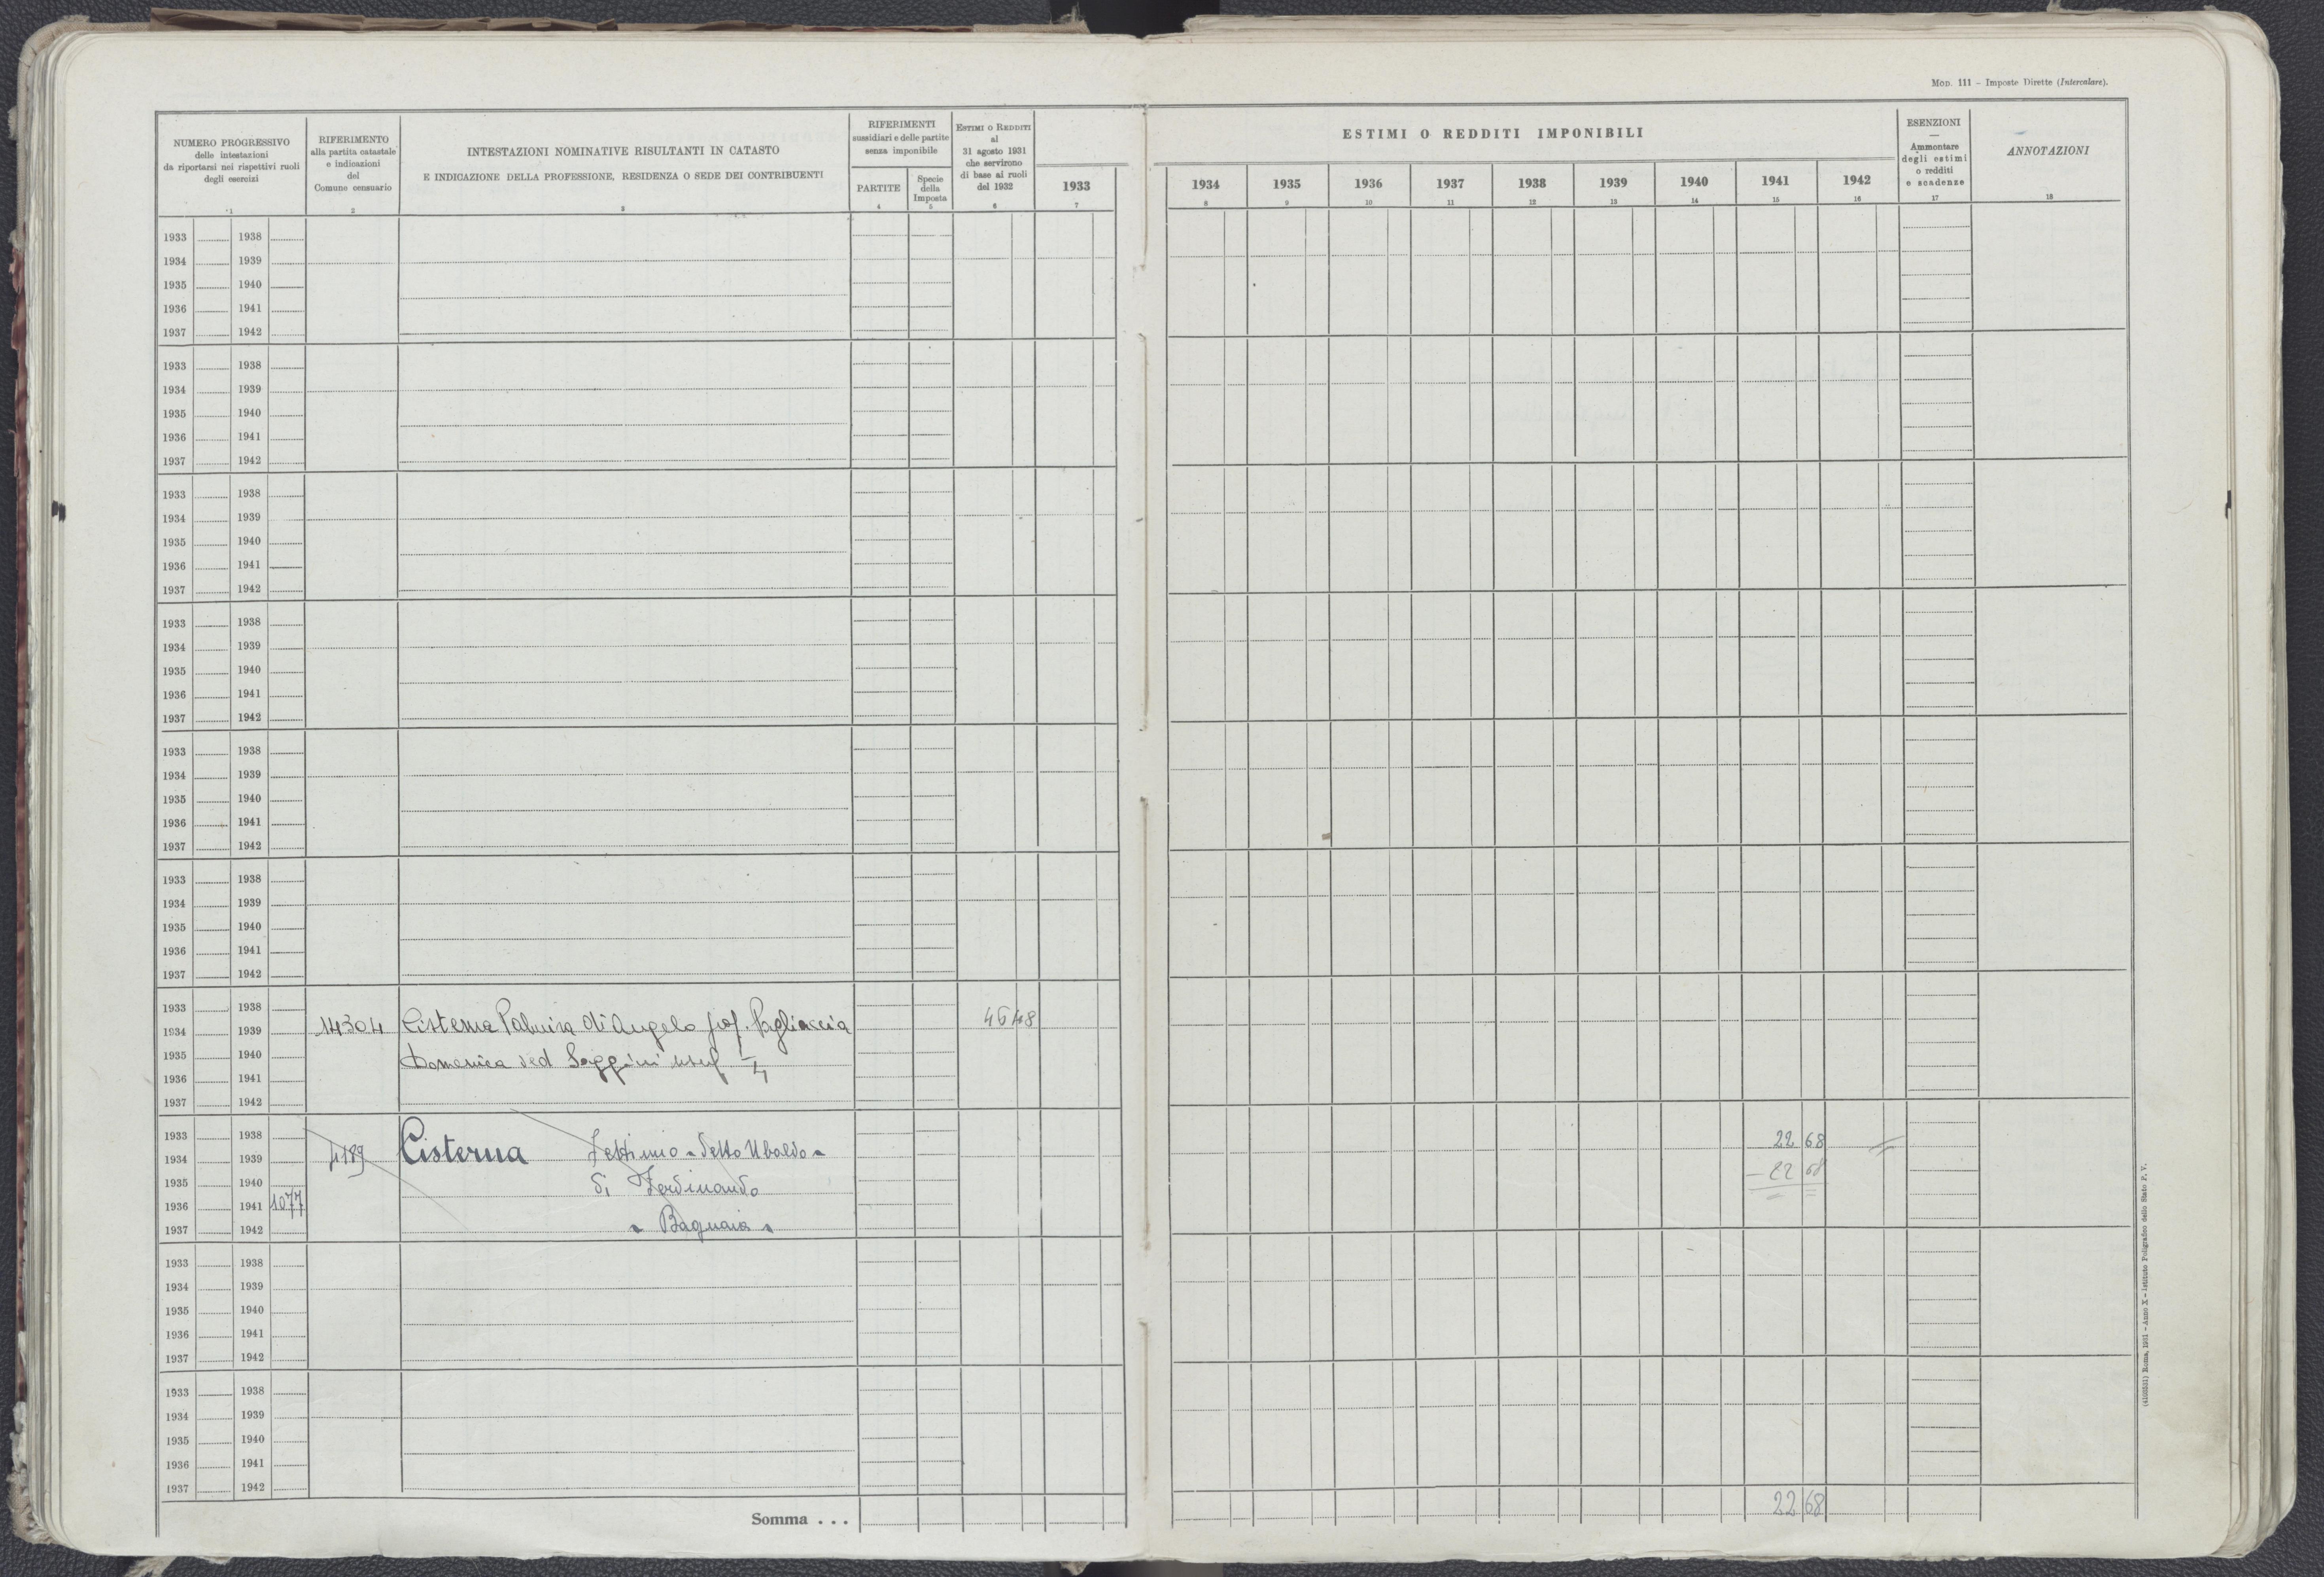 Mod. 111 – Imposte Dirette (Intercalare).
NUMERO PROGRESSIVO
delle intestazioni
da riportarsi nei rispettivi ruoli
degli esercizi
1
RIFERIMENTO
alla partita catastale
e indicazioni
del
Comune censuario
2
INTESTAZIONI NOMINATIVE RISULTANTI IN CATASTO
E INDICAZIONE DELLA PROFESSIONE, RESIDENZA O SEDE DEI CONTRIBUENTI
3
RIFERIMENTI
sussidiari e delle partite
senza imponibile
PARTITE
4
Specie
della
Imposta
5
Estimi o Redditi
al
31 agosto 1931
che servirono
di base ai ruoli
del 1932
6
1933
7
ESTIMI O REDDITI IMPONIBILI
1934 1935 1936 1937 1938 1939 1940 1941 1942
8 9 10 11 12 13 14 15 16
ESENZIONI
—
Ammontare
degli estimi
o redditi
e scadenze
17
ANNOTAZIONI
18
1933 1938
1934 1939
1935 1940
1936 1941
1937 1942
1933 1938
1934 1939
1935 1940
1936 1941
1937 1942
1933 1938
1934 1939
1935 1940
1936 1941
1937 1942
1933 1938
1934 1939
1935 1940
1936 1941
1937 1942
1933 1938
1934 1939
1935 1940
1936 1941
1937 1942
1933 1938
1934 1939
1935 1940
1936 1941
1937 1942
1933 1938
1934 1939 14304 Cisterna Palmira di Angelo prop. Pagliaccia 46 48
1935 1940 Domenica ved Soggini usuf
1936 1941
1937 1942
1933 1938 22 68
1934 1939 4189 Cisterna Settimio - detto Ubaldo -
1935 1940 di Ferdinando – 22 68
1936 1941 1077
1937 1942 - Bagnaia -
1933 1938
1934 1939
1935 1940
1936 1941
1937 1942
1933 1938
1934 1939
1935 1940
1936 1941
1937 1942
Somma . . . 22 68
(4103531) Roma, 1931 – Anno X – Istituto Poligrafico dello Stato P. V.